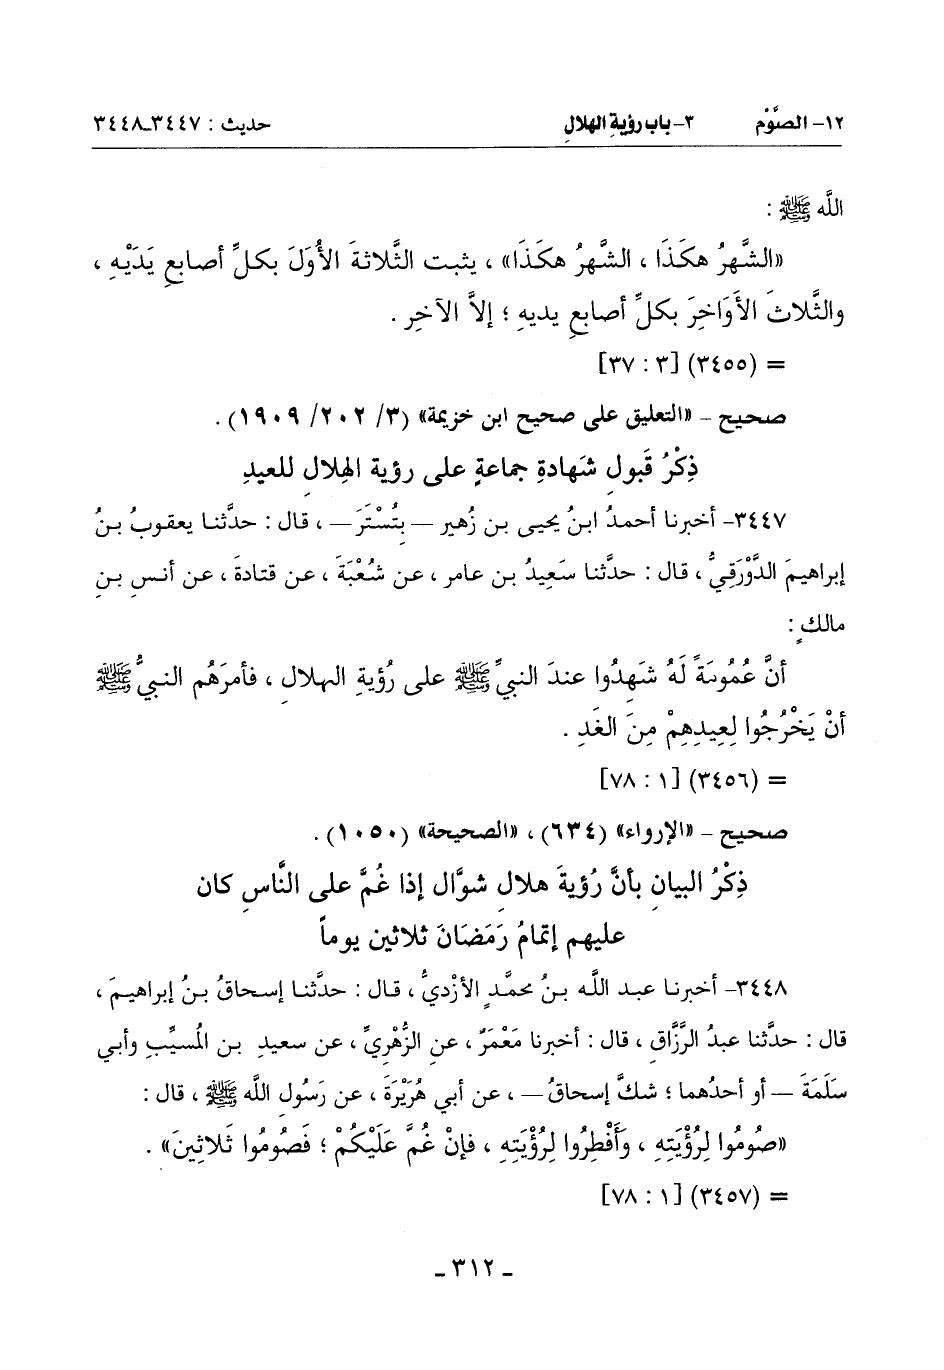 ١٢- الصَّوْم ٣- باب رؤيةِ الهلالِ حديث : ٣٤٤٧-٣٤٤٨
اللَّه ﷺ :
«الشَّهرُ هكَذَا ، الشَّهرُ هكَذَا» ، يثبت الثَّلاثةَ الأُوَلَ بكلِّ أصابعِ يَدَيْهِ ،
والثَّلاثَ الأَوَاخِرَ بكلِّ أصابعِ يديهِ ؛ إلاَّ الآخِر .
= (٣٤٥٥) [٣ : ٣٧]
صحيح - «التعليق على صحيح ابن خزيمة» (٣/ ٢٠٢/ ١٩٠٩).
ذِكْرُ قَبولِ شَهادةِ جماعةٍ على رؤية الهِلالِ للعيدِ
٣٤٤٧- أخبرنا أحمدُ ابنُ يحيى بن زُهير — بِتُسْتَرَ — ، قال : حدَّثنا يعقوبُ بنُ
إبراهيمَ الدَّوْرَقِيُّ ، قال : حدَّثنا سَعِيدُ بن عامر ، عن شُعْبَةَ ، عن قتادةَ ، عن أنسِ بنِ
مالكٍ :
أنَّ عُمُومَةً لَهُ شَهِدُوا عندَ النبيِّ ﷺ على رُؤيةِ الهلالِ ، فأمرَهُم النبيُّ ﷺ
أنْ يَخْرُجُوا لِعِيدِهِمْ مِنَ الغَدِ .
= (٣٤٥٦) [١ : ٧٨]
صحيح - «الإرواء» (٦٣٤) ، «الصحيحة» (١٠٥٠) .
ذِكْرُ البيانِ بأنَّ رُؤيةَ هلالِ شوَّال إذا غُمَّ على النَّاسِ كان
عليهم إتمامُ رَمَضَانَ ثلاثين يوماً
٣٤٤٨- أخبرنا عبد اللَّه بنُ محمَّدٍ الأزْديُّ ، قال : حدَّثنا إسحاقُ بنُ إبراهيمَ ،
قال : حدَّثنا عبدُ الرَّزَّاق ، قال : أخبرنا مَعْمَرٌ ، عنِ الزُّهْريِّ ، عن سعيدِ بن المُسيِّبِ وأبي
سَلَمَةَ — أو أحدُهما ؛ شكَّ إسحاقُ — ، عن أبي هُرَيْرَةَ ، عن رَسُول اللَّه ﷺ ، قال :
«صُومُوا لِرُؤْيَتِهِ ، وَأَفْطِرُوا لِرُؤْيَتِهِ ، فإنْ غُمَّ عَلَيْكُمْ ؛ فَصُومُوا ثَلاثِينَ» .
= (٣٤٥٧) [١ : ٧٨]
- ٣١٢ -